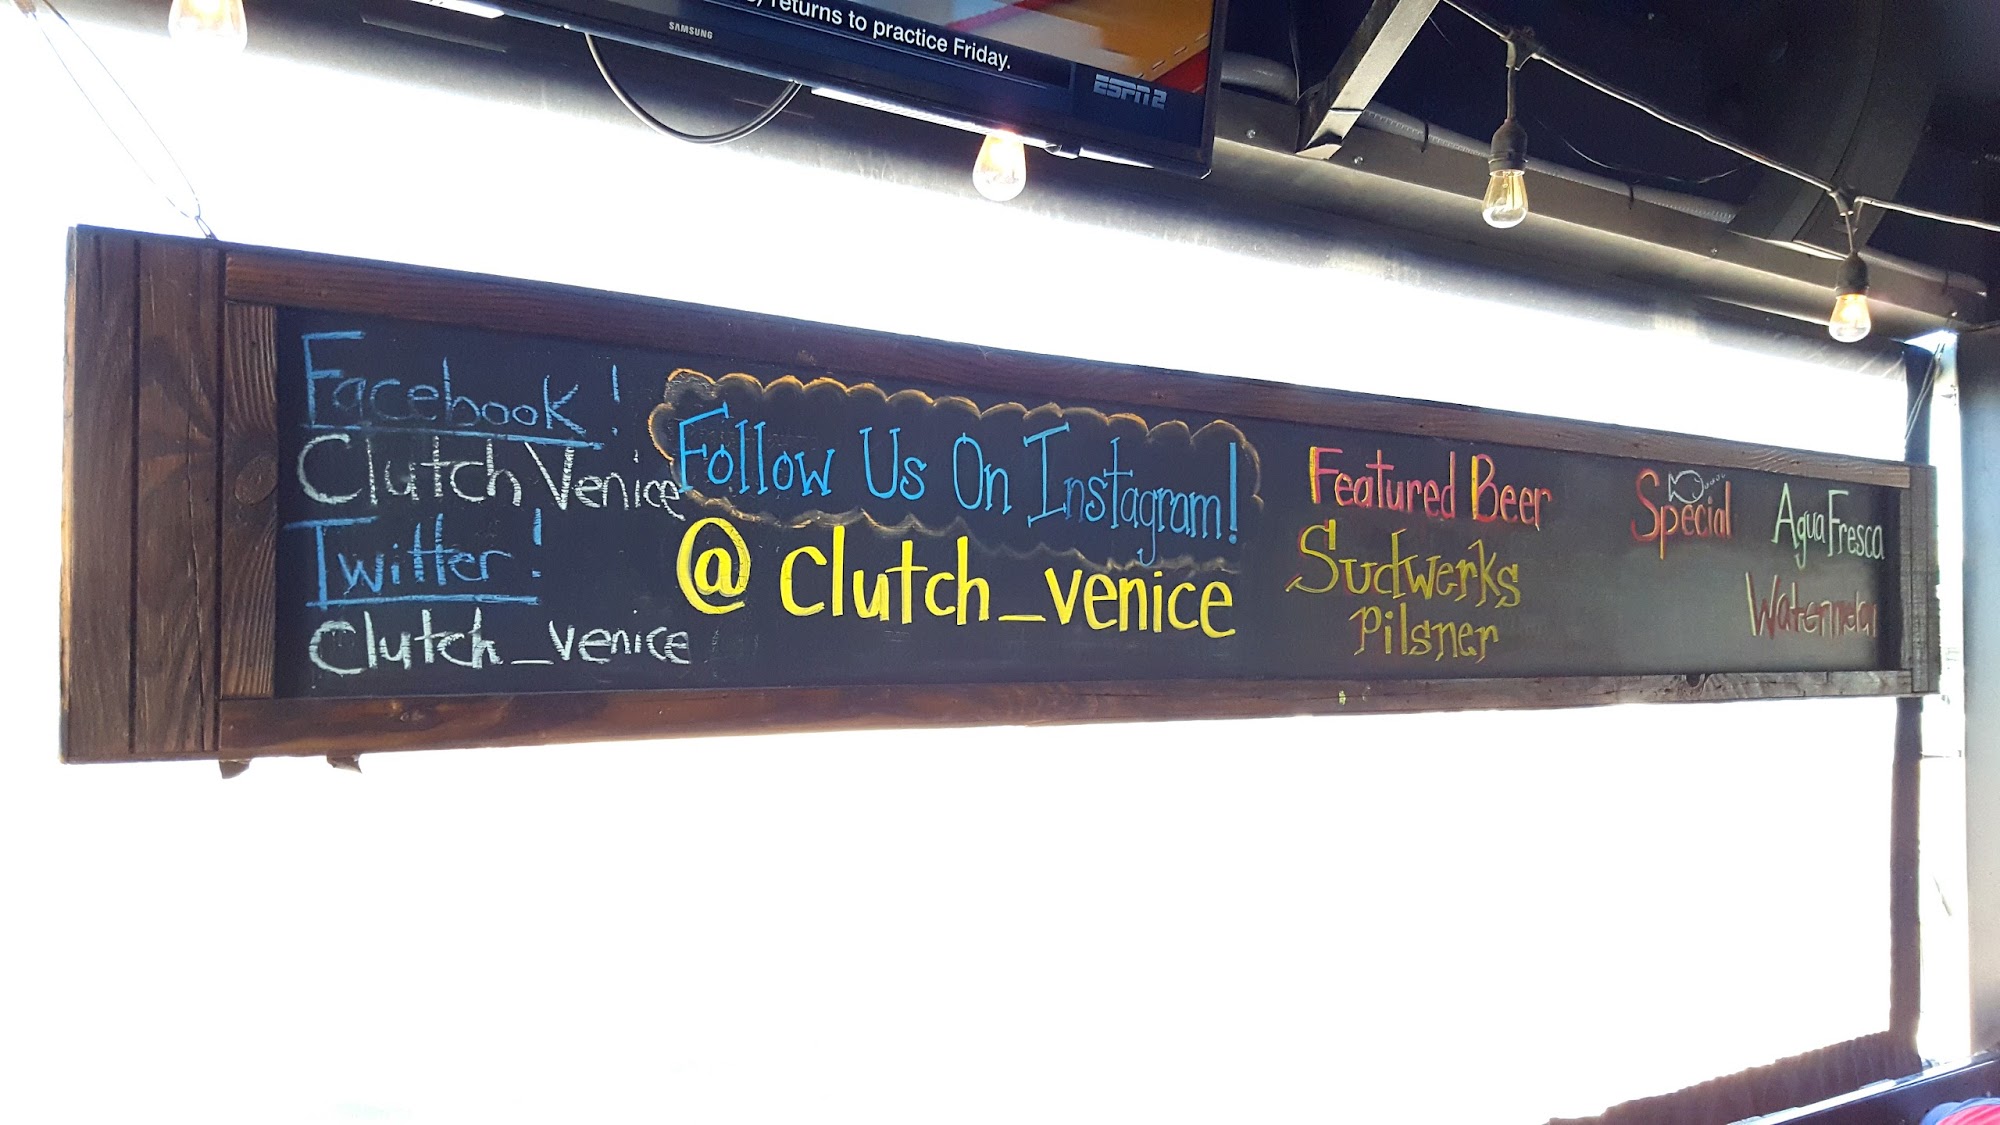 returns to practice Friday.
SAMSUNG
ESPN2
Facebook!
Clutch Venice
Twitter!
Clutch_venice
Follow Us On Instagram!
@clutch_venice
Featured Beer
Sudwerks
Pilsner
Special
Agua Fresca